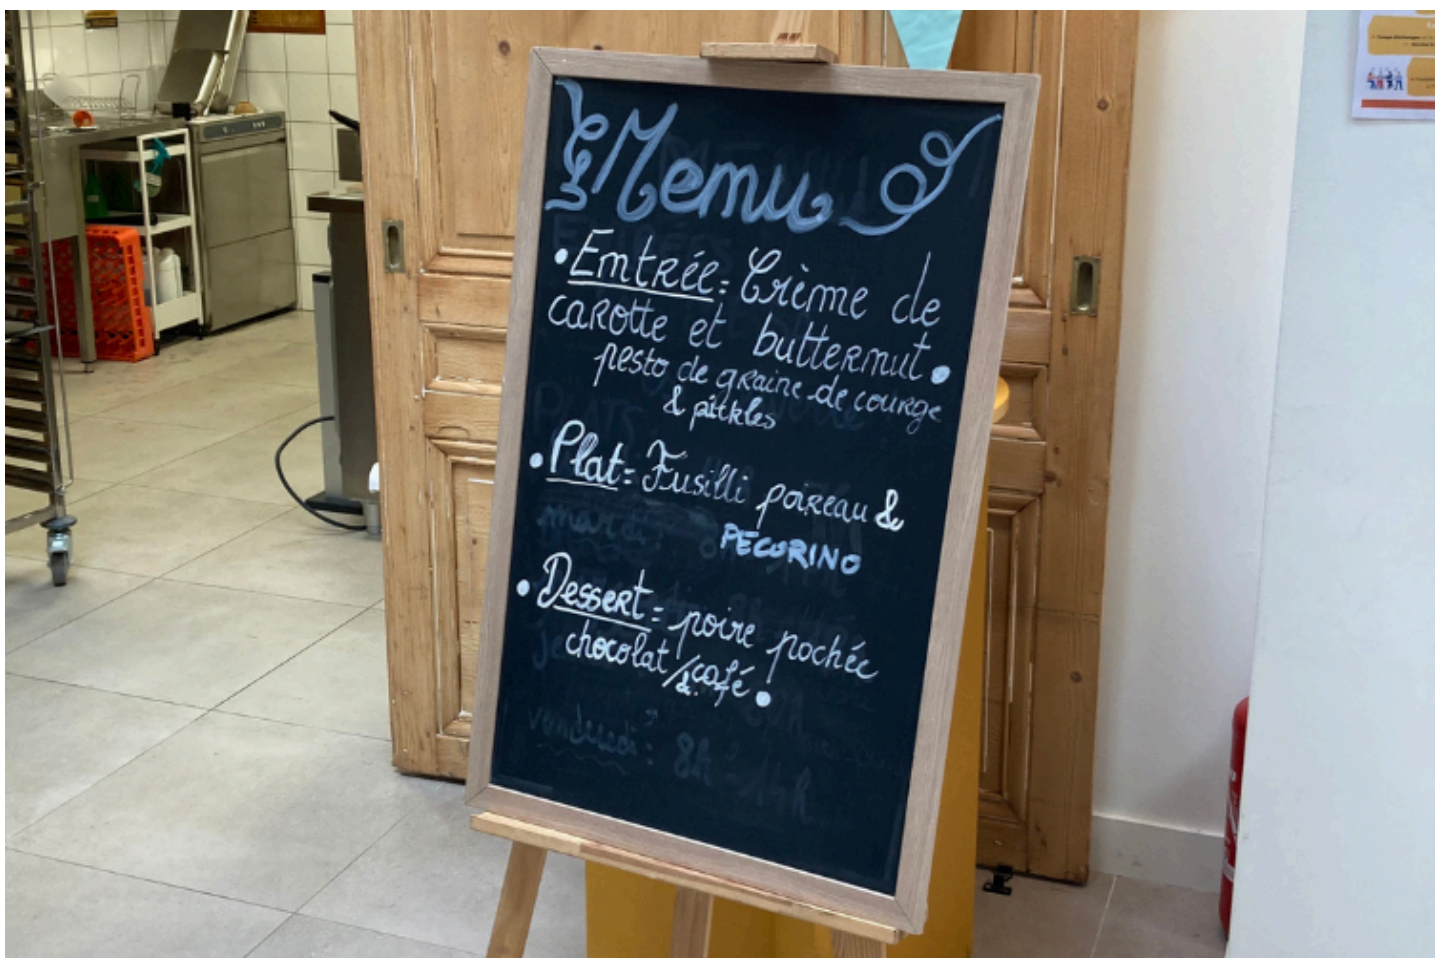 Menu
• Entrée = Crème de
carotte et butternut •
pesto de graine de courge
& pickles
• Plat = Fusilli poireau &
PECORINO
• Dessert = poire pochée
chocolat / café •
&
mardi :
vendredi : 8h - 14h